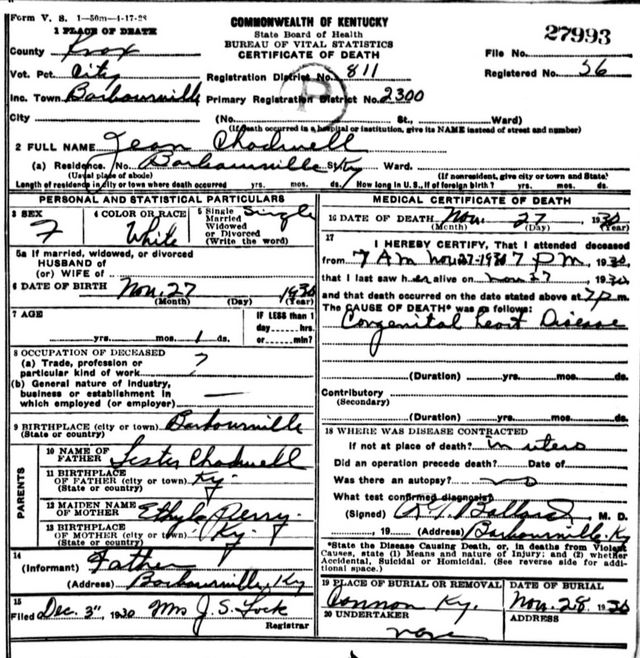 Form V. S. 1-50m-4-17-28
COMMONWEALTH OF KENTUCKY
State Board of Health
BUREAU OF VITAL STATISTICS
CERTIFICATE OF DEATH
27993
1 PLACE OF DEATH
County Knox
File No.
Vot. Pct. City
Registration District No. 811
Registered No. 56
Inc. Town Barbourville
Primary Registration District No. 2300
City (No. St., Ward)
(If death occurred in a hospital or institution, give its NAME instead of street and number)
2 FULL NAME Jean Chadwell
(a) Residence. No. Barbourville St., Ward.
(Usual place of abode) (If nonresident, give city or town and State)
Length of residence in city or town where death occurred yrs. mos. ds. How long in U. S., if of foreign birth? yrs. mos. ds.
PERSONAL AND STATISTICAL PARTICULARS
3 SEX F
4 COLOR OR RACE White
5 Single Married Widowed or Divorced (Write the word) Single
5a If married, widowed, or divorced
HUSBAND of
(or) WIFE of
6 DATE OF BIRTH Nov. 27 1930
(Month) (Day) (Year)
7 AGE
yrs. mos. 1 ds.
IF LESS than 1 day hrs. or min?
8 OCCUPATION OF DECEASED
(a) Trade, profession or particular kind of work ?
(b) General nature of industry, business or establishment in which employed (or employer) —
9 BIRTHPLACE (city or town) Barbourville
(State or country)
PARENTS
10 NAME OF FATHER Lester Chadwell
11 BIRTHPLACE OF FATHER (city or town) Ky.
(State or country)
12 MAIDEN NAME OF MOTHER Ethyle Perry
13 BIRTHPLACE OF MOTHER (city or town) Ky.
(State or country)
14
(Informant) Father
(Address) Barbourville, Ky
15
Filed Dec. 3" 1930 Mrs J. S. Lock
Registrar
MEDICAL CERTIFICATE OF DEATH
16 DATE OF DEATH Nov. 27 1930
(Month) (Day) (Year)
17
I HEREBY CERTIFY, That I attended deceased
from 7 AM Nov 27-1930 7 PM, 1930
that I last saw her alive on Nov 27 1930
and that death occurred on the date stated above at 7 p.m.
The CAUSE OF DEATH* was as follows:
Congenital heart Disease
(Duration) yrs. mos. ds.
Contributory
(Secondary)
(Duration) yrs. mos. ds.
18 WHERE WAS DISEASE CONTRACTED
If not at place of death? in utero
Did an operation precede death? Date of
Was there an autopsy? no
What test confirmed diagnosis?
(Signed) Ballard, M. D.
, 19 (Address) Barbourville, Ky
*State the Disease Causing Death, or, in deaths from Violent
Causes, state (1) Means and nature of Injury; and (2) whether
Accidental, Suicidal or Homicidal. (See reverse side for addi-
tional space.)
19 PLACE OF BURIAL OR REMOVAL
Cannon Ky.
DATE OF BURIAL
Nov. 28 1930
20 UNDERTAKER
none
ADDRESS